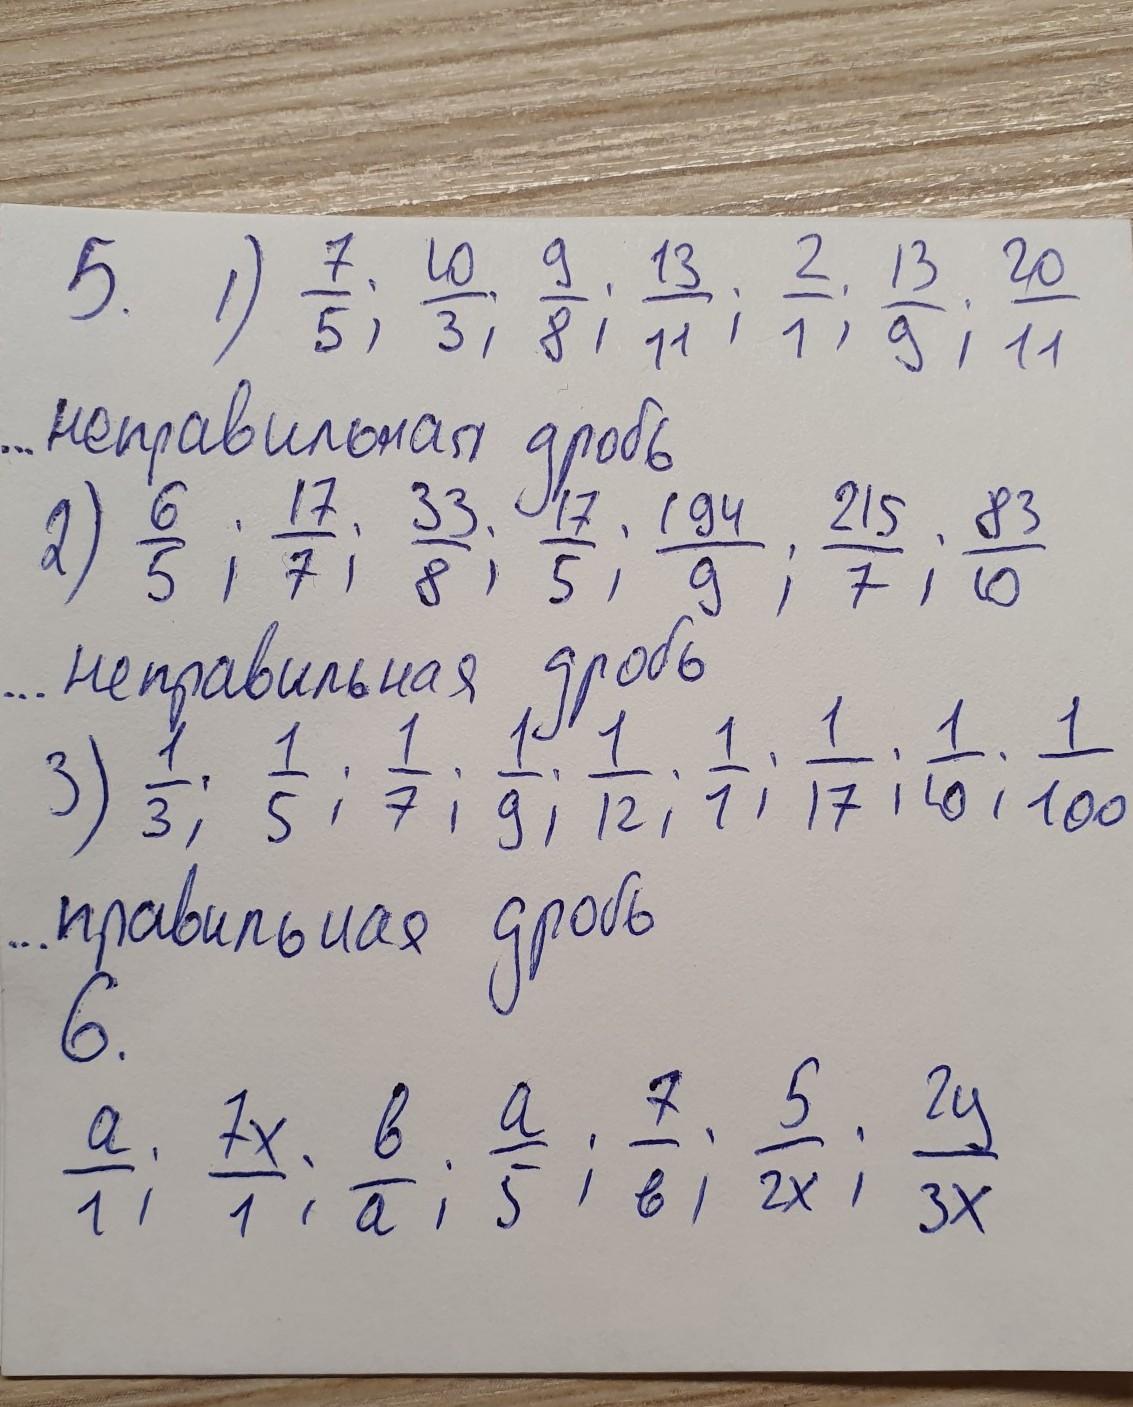 5. 1) 7/5; 10/3; 9/8; 13/11; 2/1; 13/9; 20/11
...неправильная дробь
2) 6/5; 17/7; 33/8; 17/5; 194/9; 215/7; 83/10
...неправильная дробь
3) 1/3; 1/5; 1/7; 1/9; 1/12; 1/1; 1/17; 1/10; 1/100
...правильная дробь
6.
a/1; 7x/1; b/a; a/5; 7/b; 5/2x; 2y/3x